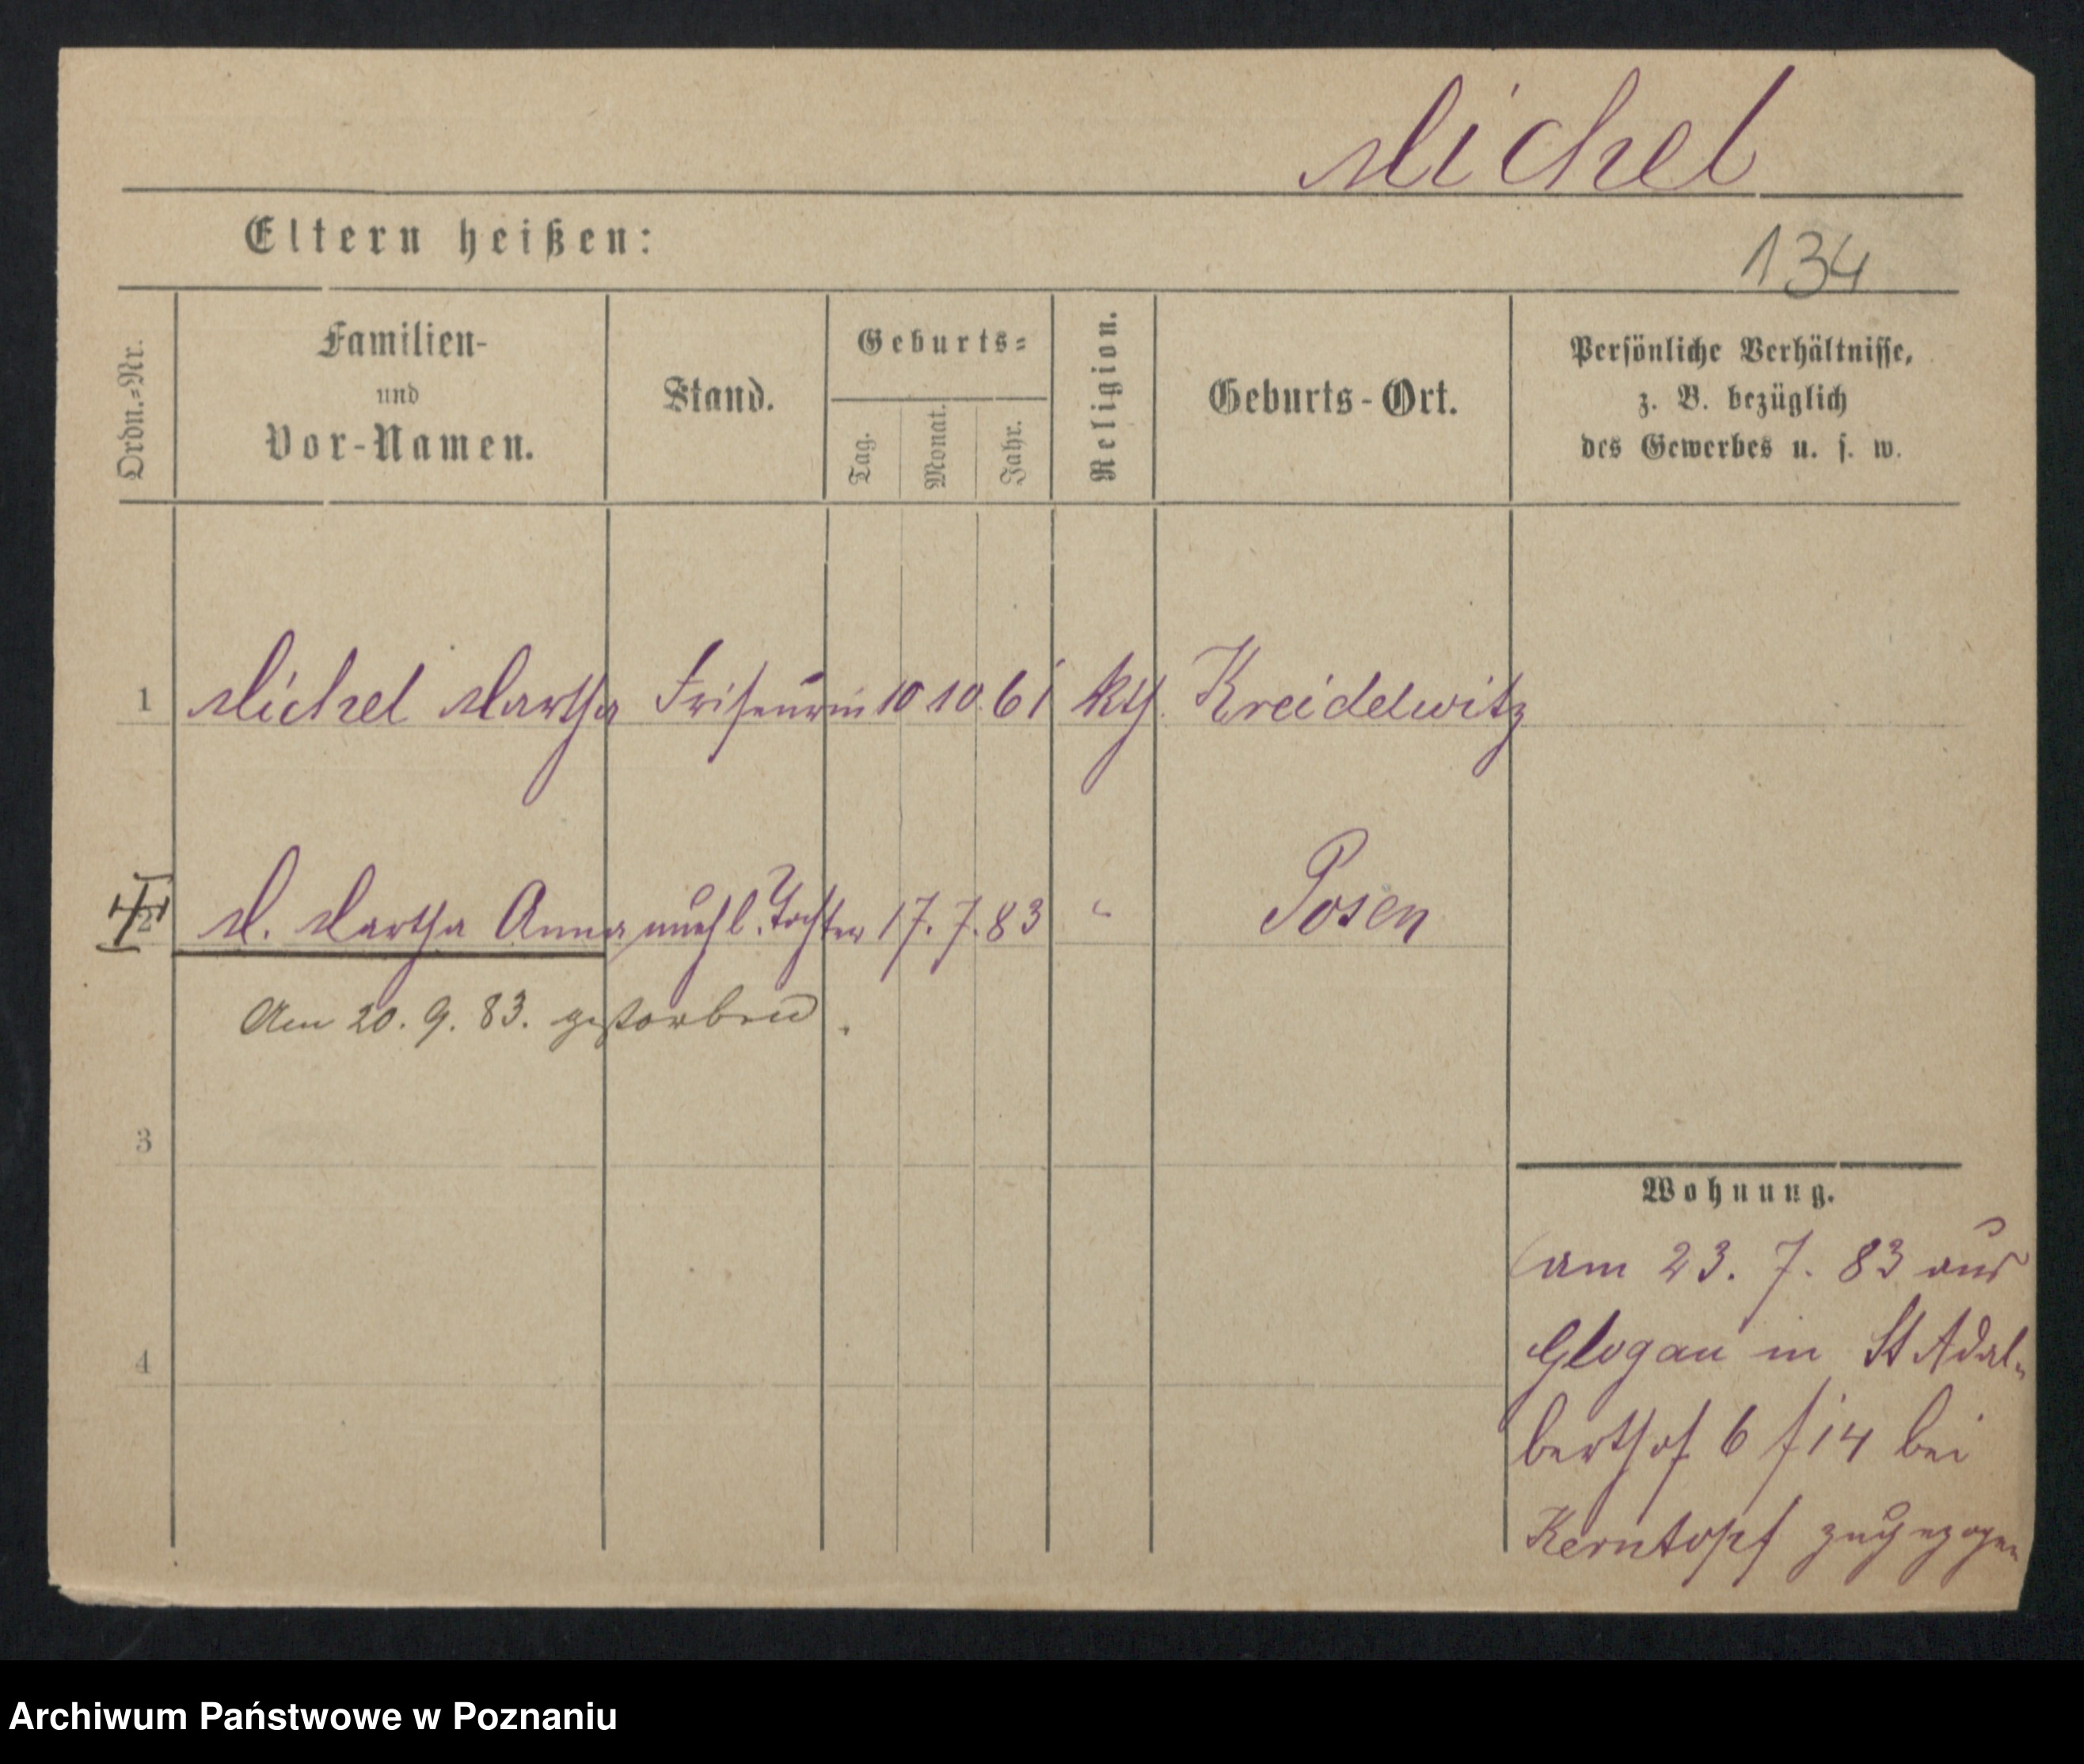 Michel
Eltern heißen:
134
Ordn.-Nr.
Familien-
und
Vor-Namen.
Stand.
Geburts-
Tag.
Monat.
Jahr.
Religion.
Geburts-Ort.
Persönliche Verhältnisse,
z. B. bezüglich
des Gewerbes u. s. w.
1 Michel Martha Friseurin 10 10. 61 kth. Kreidelwitz
2 M. Martha Anna unehl. Tochter 17. 7. 83 " Posen
Am 20. 9. 83. gestorben.
3
Wohnung.
am 23. 7. 83 aus
Glogau in St Adal-
4
berthof 6 f 14 bei
Kerntopf zugezogen
Archiwum Państwowe w Poznaniu